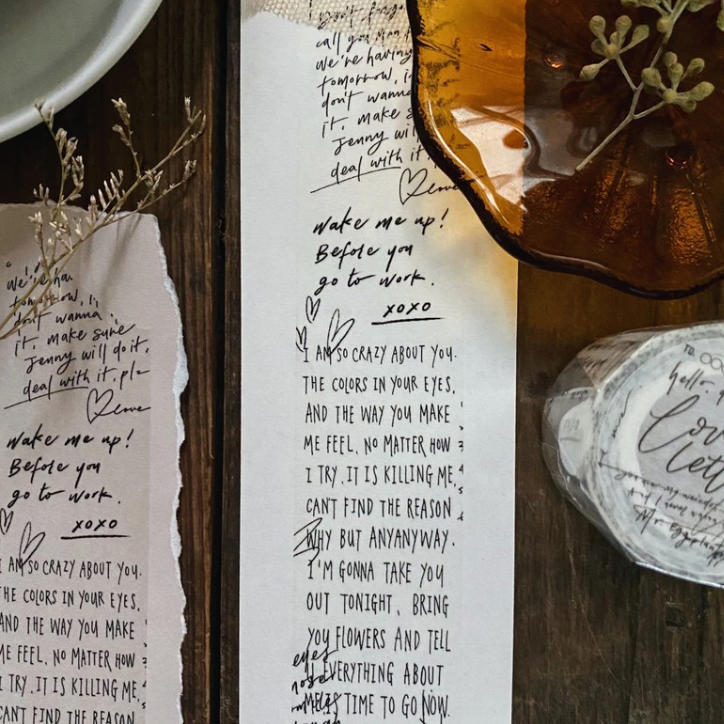 don't forge
call you man
we're having
tomorrow, I
don't wanna
it, make s
Jenny will
deal with it.
love
wake me up!
Before you
go to work.
xoxo
I AM SO CRAZY ABOUT YOU.
THE COLORS IN YOUR EYES,
AND THE WAY YOU MAKE
ME FEEL. NO MATTER HOW
I TRY. IT IS KILLING ME,
CAN'T FIND THE REASON
WHY BUT ANYANYWAY.
I'M GONNA TAKE YOU
OUT TONIGHT, BRING
YOU FLOWERS AND TELL
EVERYTHING ABOUT
ME. IT'S TIME TO GO NOW.
eyes
nose
we're ha
tomorrow, I
don't wanna
it, make sure
Jenny will do it,
deal with it. ple
love
wake me up!
Before you
go to work.
xoxo
I AM SO CRAZY ABOUT YOU.
THE COLORS IN YOUR EYES,
AND THE WAY YOU MAKE
ME FEEL. NO MATTER HOW
I TRY. IT IS KILLING ME,
CAN'T FIND THE REASON
TO.
hello,
Lov
lett